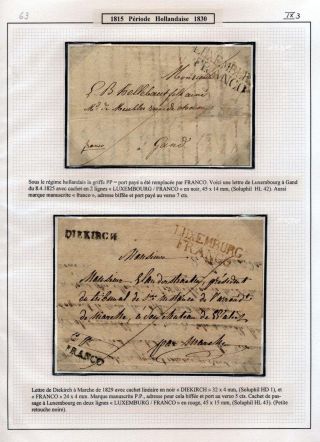 63
1815 Période Hollandaise 1830
IX 3
LUXEMBURG
FRANCO
Monsieur
franco
à Gand
Sous le régime hollandais la griffe PP = port payé a été remplacée par FRANCO. Voici une lettre de Luxembourg à Gand
du 8.4.1825 avec cachet en 2 lignes « LUXEMBOURG / FRANCO » en noir, 45 x 14 mm, (Soluphil HL 42). Aussi
marque manuscrite « franco », adresse biffée et port payé au verso 7 cts.
DIEKIRCH
LUXEMBURG
FRANCO
Monsieur
Monsieur président
du tribunal de
de Marche
par Marche
FRANCO
Lettre de Diekirch à Marche de 1829 avec cachet linéaire en noir « DIEKIRCH » 32 x 4 mm, (Soluphil HD 1), et
« FRANCO » 24 x 4 mm. Marque manuscrite P.P., adresse pour cela biffée et port au verso 5 cts. Cachet de pas-
sage à Luxembourg en deux lignes « LUXEMBOURG / FRANCO » en rouge, 45 x 15 mm, (Soluphil HL 43). (Petite
retouche noire).